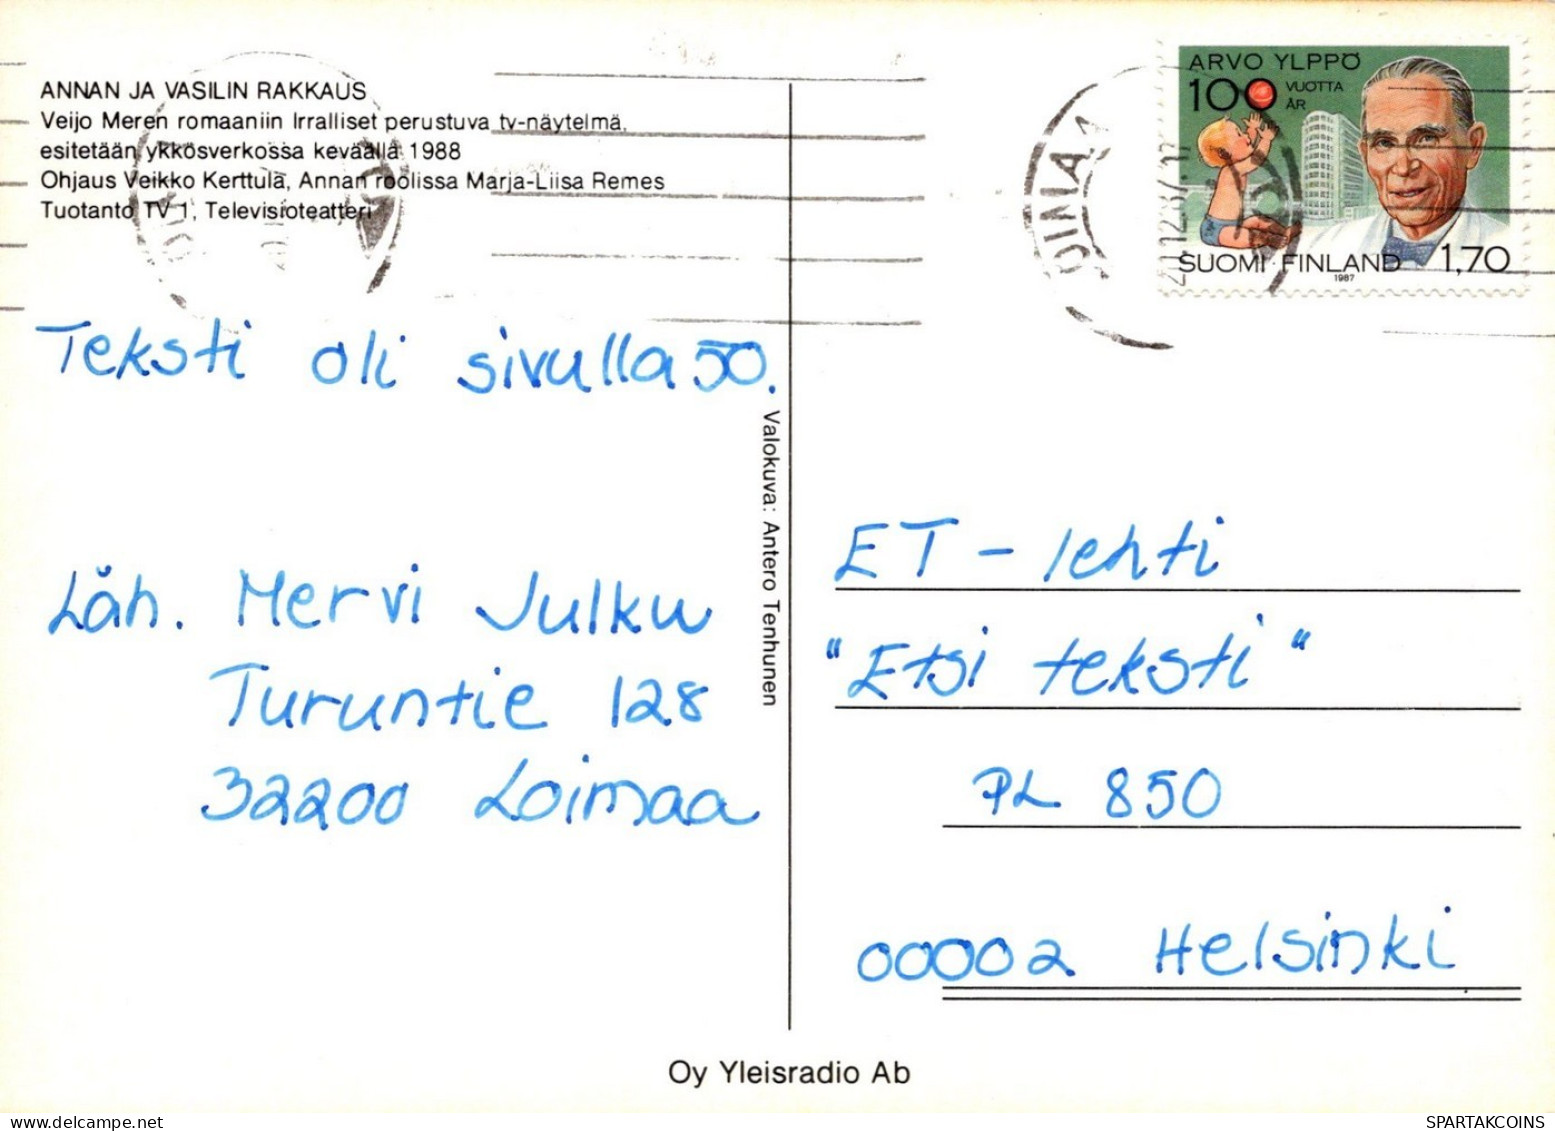 ANNAN JA VASILIN RAKKAUS
Veijo Meren romaaniin Irralliset perustuva tv-näytelmä,
esitetään ykkösverkossa keväällä 1988
Ohjaus Veikko Kerttula, Annan roolissa Marja-Liisa Remes
Tuotanto TV 1, Televisioteatteri
ARVO YLPPÖ
100 VUOTTA
ÅR
SUOMI FINLAND 1,70
1987
Teksti oli sivulla 50.
Valokuva: Antero Tenhunen
Läh. Mervi Julku
Turuntie 128
32200 Loimaa
ET - lehti
"Etsi teksti"
PL 850
00002 Helsinki
Oy Yleisradio Ab
SPARTAKCOINS